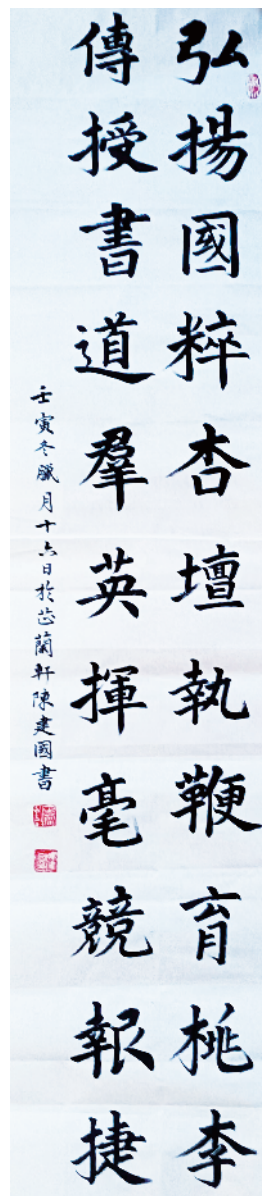 弘揚國粹杏壇執鞭育桃李
傳授書道羣英揮毫競報捷
壬寅冬臘月十六日於芷蘭軒陳建國書